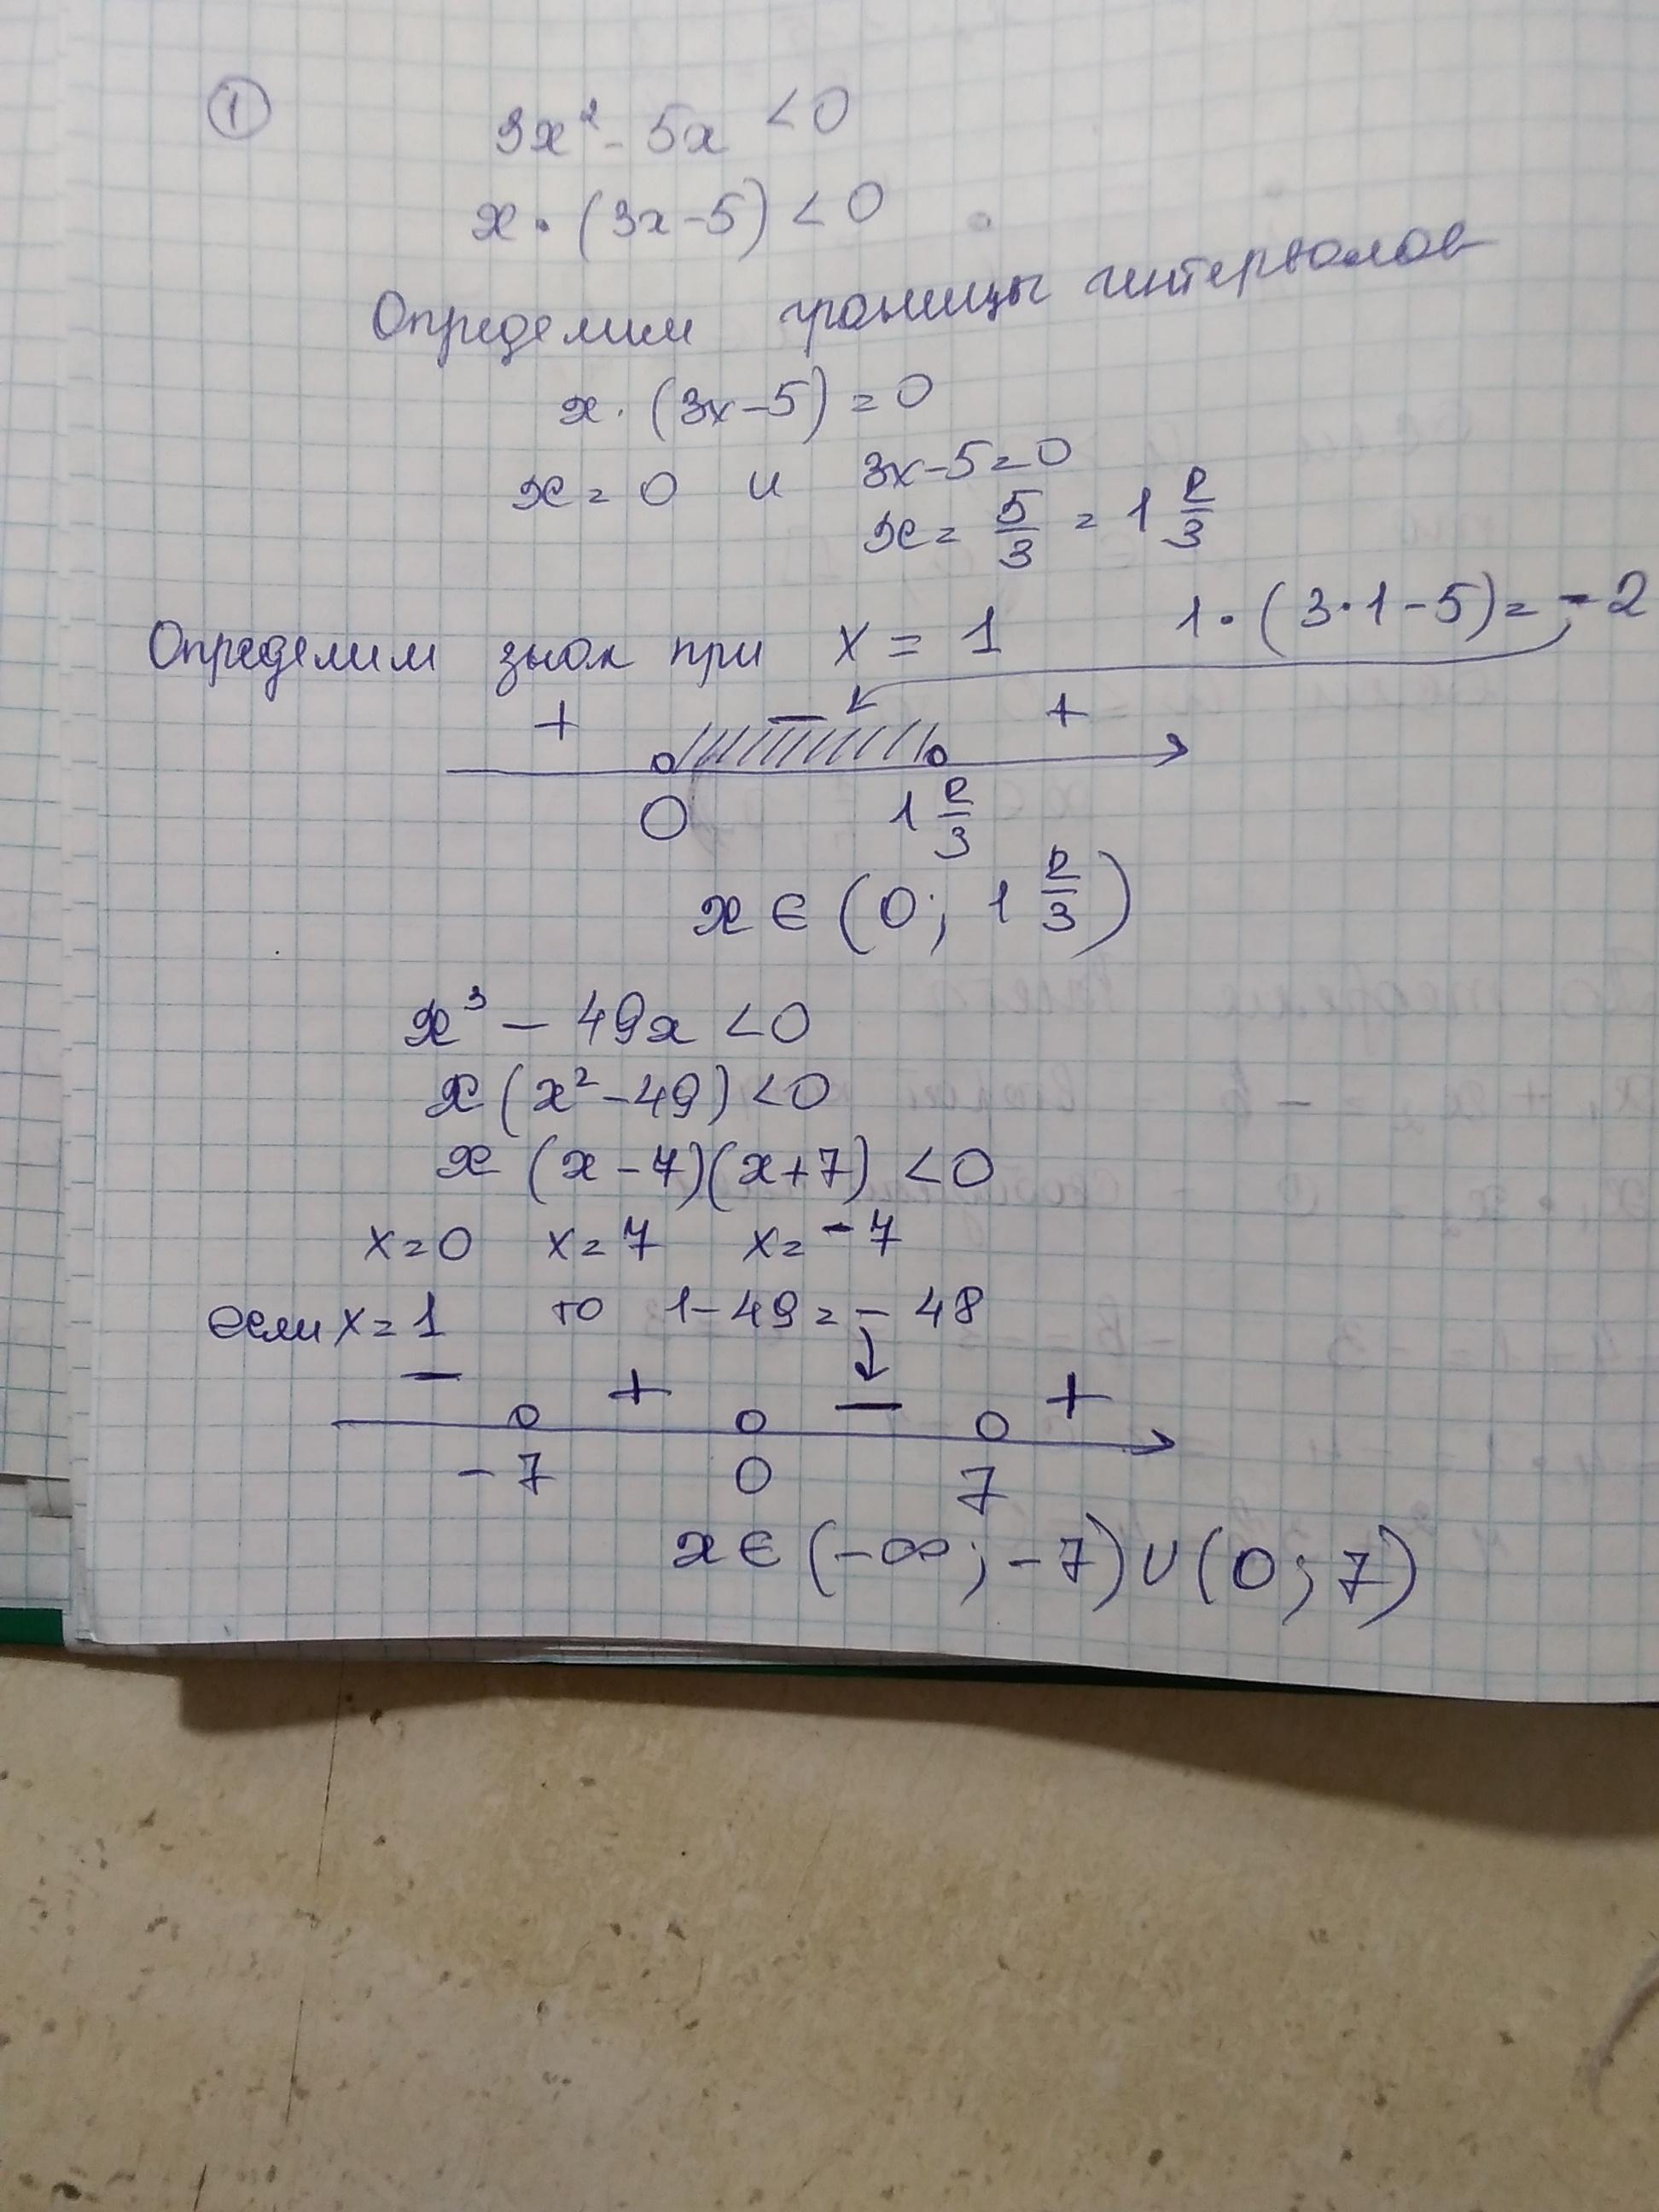 1
3x² - 5x < 0
x · (3x - 5) < 0
Определим границы интервалов
x · (3x - 5) = 0
x = 0 и 3x - 5 = 0
x = 5/3 = 1 2/3
Определим знак при x = 1 1 · (3 · 1 - 5) = - 2
+ − +
0 1 2/3
x ∈ (0; 1 2/3)
x³ - 49x < 0
x (x² - 49) < 0
x (x - 7)(x + 7) < 0
x = 0 x = 7 x = - 7
если x = 1 то 1 - 49 = - 48
− + − +
- 7 0 7
x ∈ (-∞; -7) ∪ (0; 7)